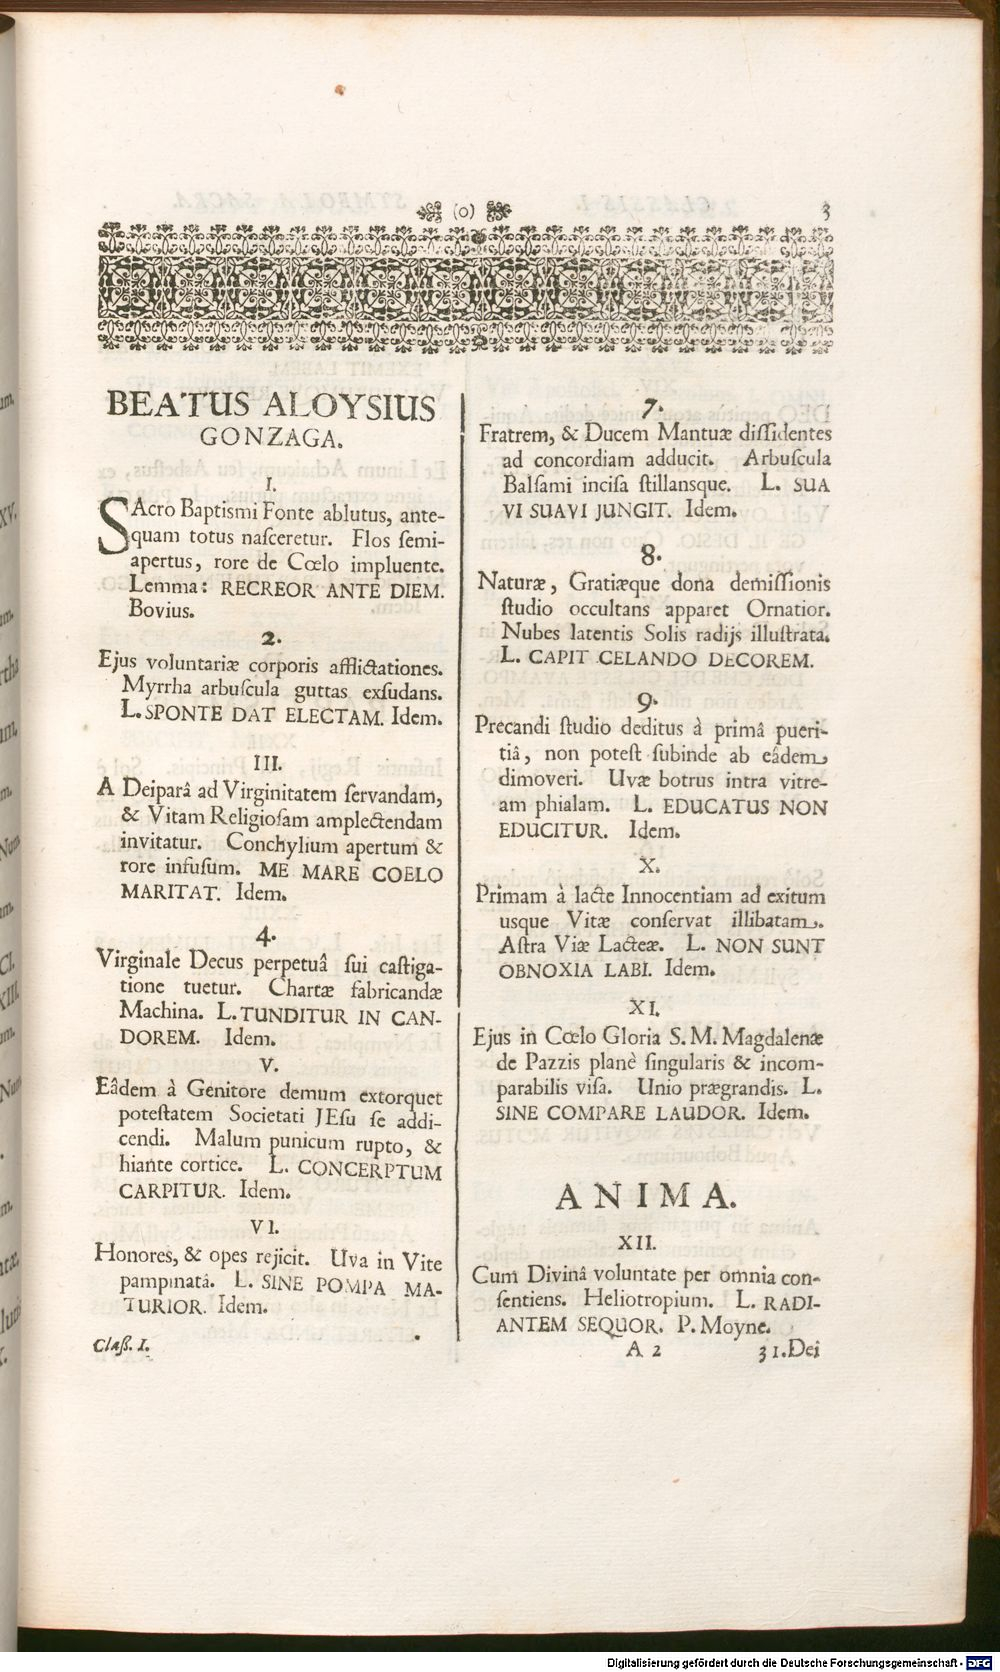 (o)
3
BEATUS ALOYSIUS
GONZAGA.
I.
SAcro Baptismi Fonte ablutus, ante-
quam totus nasceretur. Flos semi-
apertus, rore de Cœlo impluente.
Lemma: RECREOR ANTE DIEM.
Bovius.
2.
Ejus voluntariæ corporis afflictationes.
Myrrha arbuscula guttas exsudans.
L. SPONTE DAT ELECTAM. Idem.
III.
A Deiparâ ad Virginitatem servandam,
& Vitam Religiosam amplectendam
invitatur. Conchylium apertum &
rore infusum. ME MARE COELO
MARITAT. Idem.
4.
Virginale Decus perpetuâ sui castiga-
tione tuetur. Chartæ fabricandæ
Machina. L. TUNDITUR IN CAN-
DOREM. Idem.
V.
Eâdem à Genitore demum extorquet
potestatem Societati JEsu se addi-
cendi. Malum punicum rupto, &
hiante cortice. L. CONCERPTUM
CARPITUR. Idem.
VI.
Honores, & opes rejicit. Uva in Vite
pampinatâ. L. SINE POMPA MA-
TURIOR. Idem.
Claß. I.
7.
Fratrem, & Ducem Mantuæ dissidentes
ad concordiam adducit. Arbuscula
Balsami incisa stillansque. L. SUA
VI SUAVI JUNGIT. Idem.
8.
Naturæ, Gratiæque dona demissionis
studio occultans apparet Ornatior.
Nubes latentis Solis radijs illustrata.
L. CAPIT CELANDO DECOREM.
9.
Precandi studio deditus à primâ pueri-
tiâ, non potest subinde ab eâdem
dimoveri. Uvæ botrus intra vitre-
am phialam. L. EDUCATUS NON
EDUCITUR. Idem.
X.
Primam à lacte Innocentiam ad exitum
usque Vitæ conservat illibatam.
Astra Viæ Lacteæ. L. NON SUNT
OBNOXIA LABI. Idem.
XI.
Ejus in Cœlo Gloria S. M. Magdalenæ
de Pazzis planè singularis & incom-
parabilis visa. Unio prægrandis. L.
SINE COMPARE LAUDOR. Idem.
ANIMA.
XII.
Cum Divinâ voluntate per omnia con-
sentiens. Heliotropium. L. RADI-
ANTEM SEQUOR. P. Moyne.
A 2
31. Dei
Digitalisierung gefördert durch die Deutsche Forschungsgemeinschaft - DFG